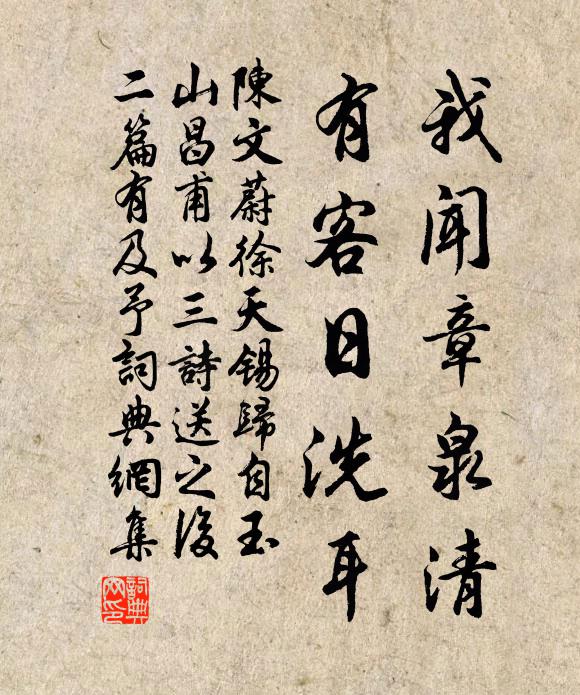 我聞章泉清
有客日洗耳
陳文蔚徐天錫歸自玉
山昌甫以三詩送之後
二篇有及予詞典網集
詞典網印